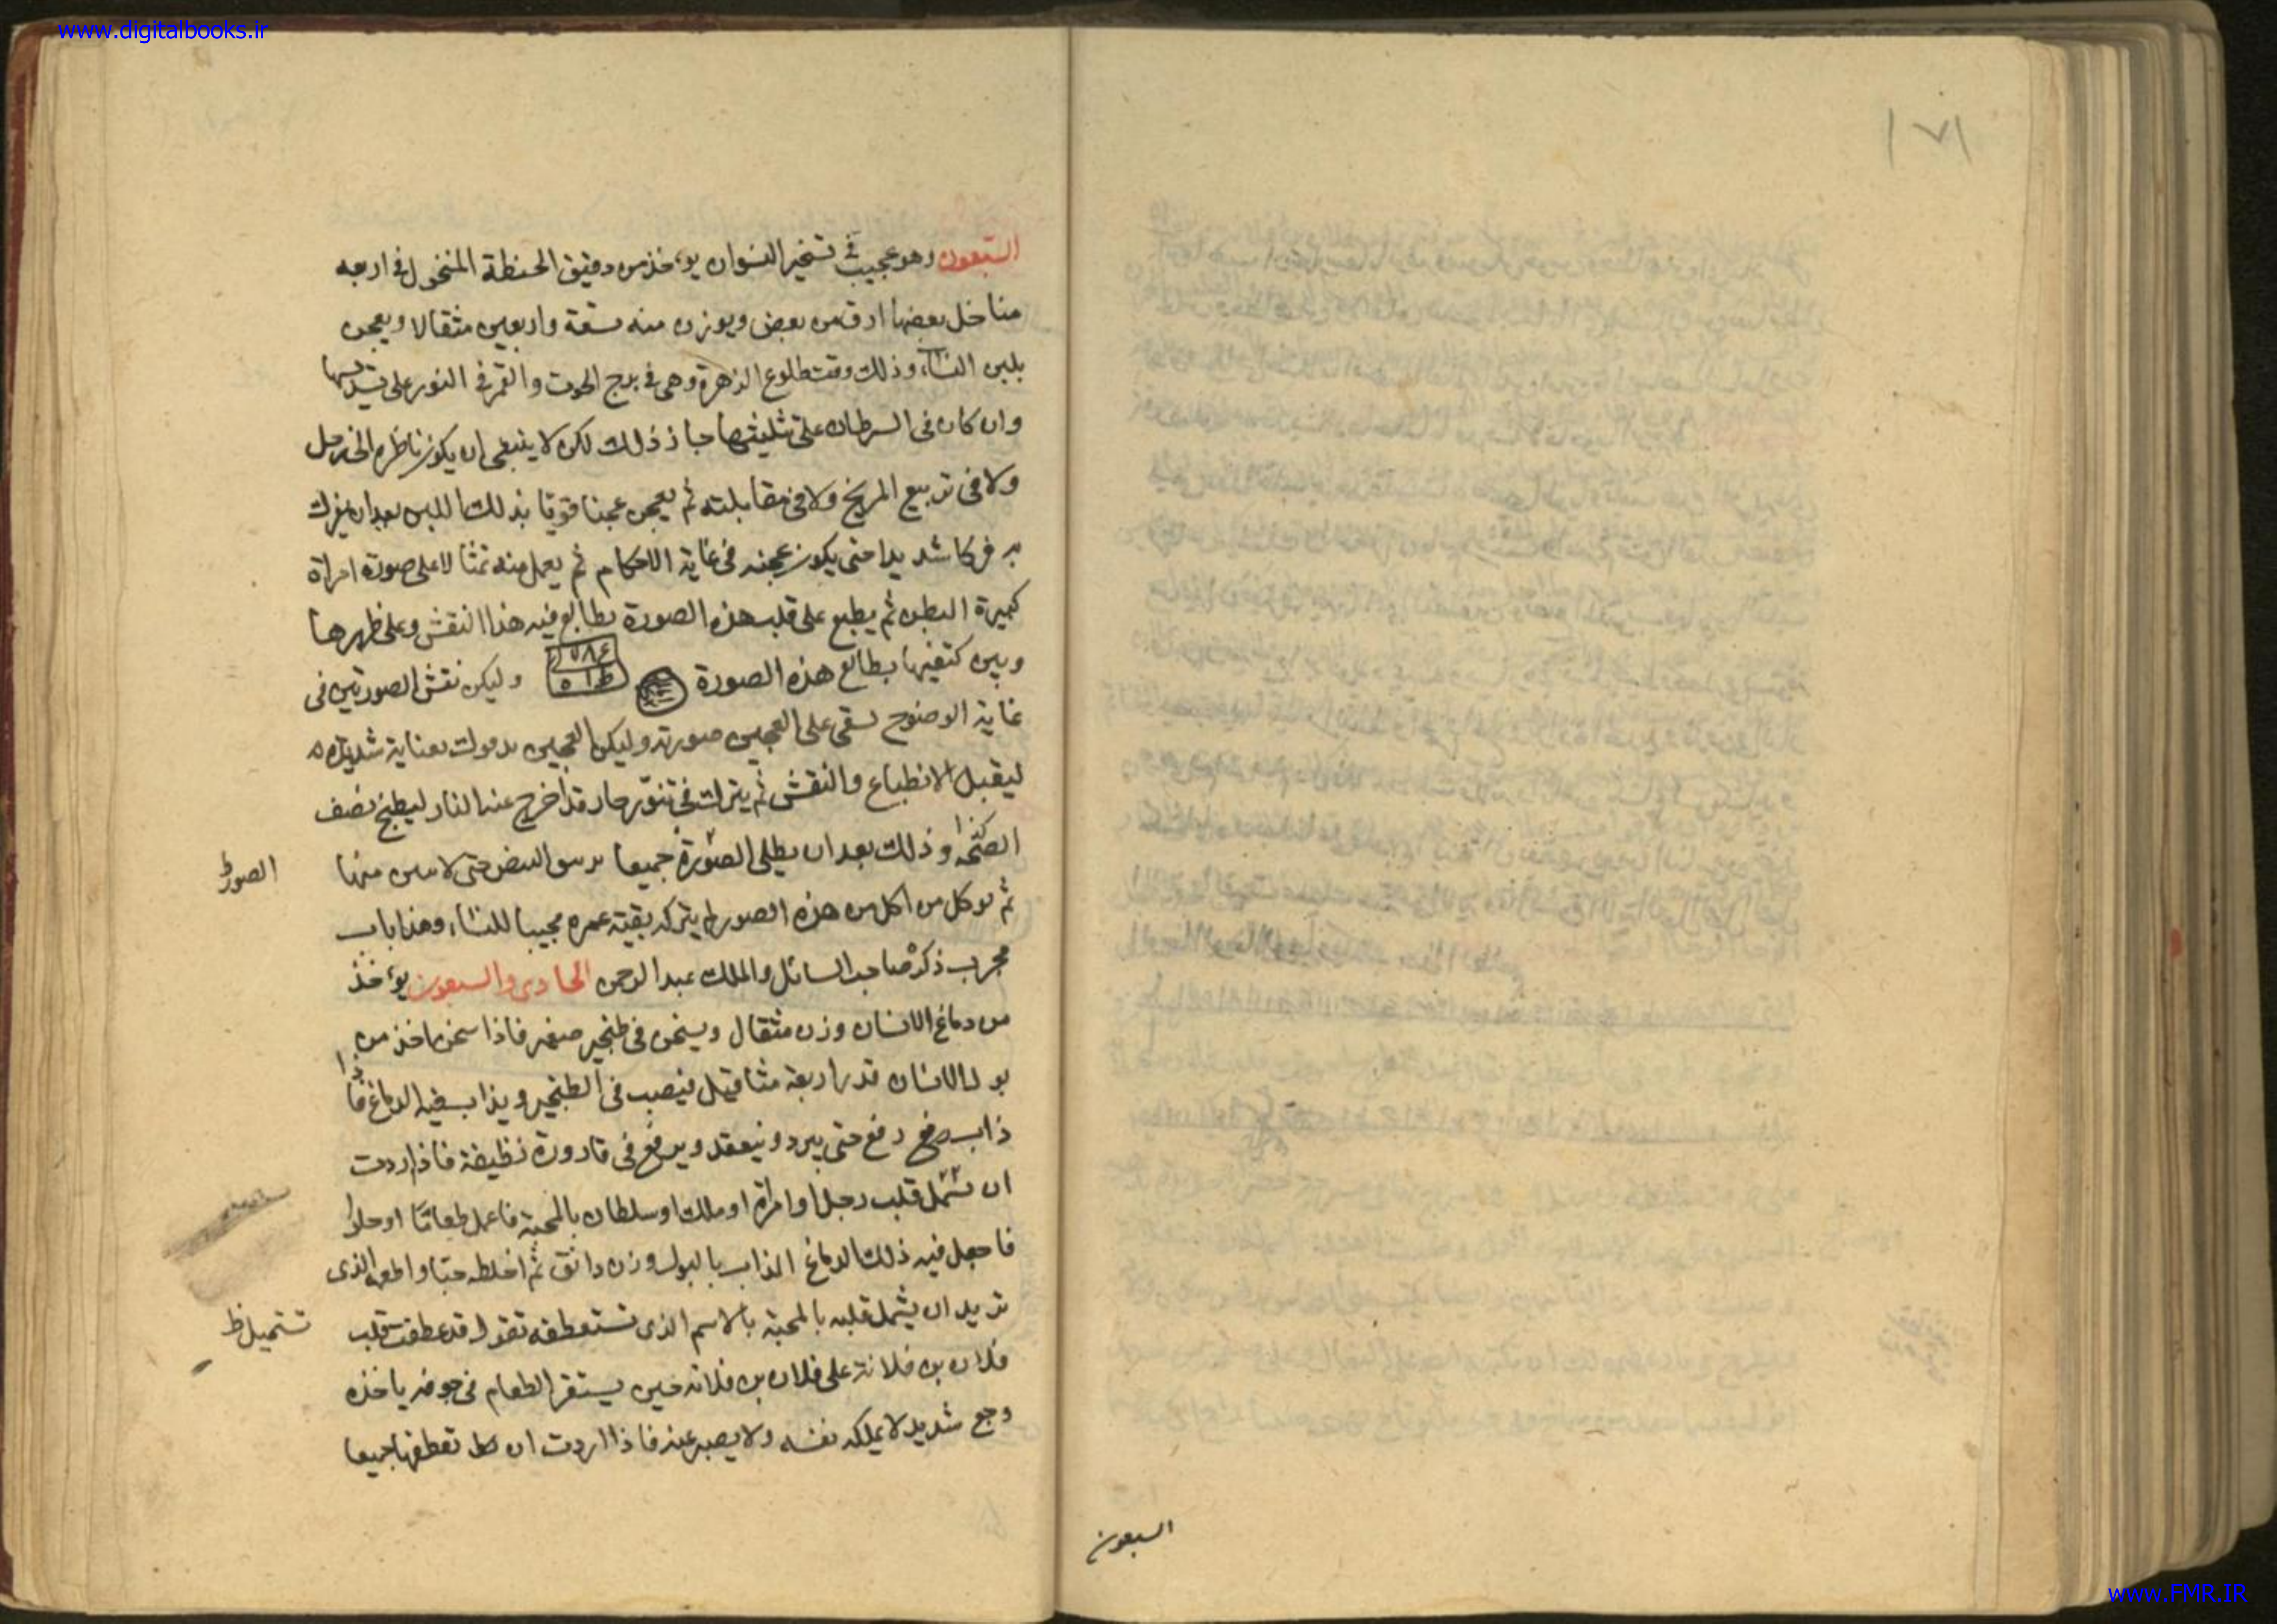 www.digitalbooks.ir
١٧١
السبعون
السبعون وهو عجيب في تسخير النسوان يوءخذ من دقيق الحنطة المنخول في اربعه
مناخل بعضها ادق من بعض ويوزن منه تسعة واربعين مثقالا ويعجن
بلبن النساء وذلك وقت طلوع الزهرة وهى في برج الحوت والقمر في الثور على تسديسها
وان كان في السرطان على تثليثها جاز ذلك لكن لا ينبغي ان يكون ناظره الى زحل
ولا في تربيع المريخ ولا في مقابلته ثم يعجن عجنا قويا بذلك اللبن بعد ان يفرك
به فركا شديدا حتى يكون عجنه في غاية الاحكام ثم يعمل منه تمثالا على صورة امراة
كبيرة البطن ثم يطبع على قلب هذه الصورة بطابع فيه هذا النقش وعلى ظهرها
وبين كتفيها بطابع هذه الصورة وليكن نقش الصورتين في
غاية الوضوح على العجين صورته وليكن العجين بعناية شديدة
ليقبل الانطباع والنقش ثم يترك في تنور حار قد اخرج عنه النار ليطبخ نصف
كذا وذلك بعد ان يطلى الصورة جميعا حتى منها
الصور ظ
ثم من اكل من هذه الصور لم يترك بقية عمره محببا للنساء وهذا باب
مجرب ذكره صاحب السائل والملك عبد الرحمن الحادى والسبعون يوءخذ
من دماغ الانسان وزن مثقال ويسخن في طنجير صغير فاذا سخن ياخذ من
بول الانسان قدر اربعة مثاقيل فيصب في الطنجير ويذاب فيه الدماغ فاذا
ذاب رفع حتى يبرد وينعقد ويرفع في قارورة نظيفة فاذا اردت
ان تشتمل قلب رجل او امراة او ملك او سلطان بالمحبة فاعمل طعاما او حلوا
فاجعل فيه ذلك الدماغ الذاب بالبول وزن دانق ثم اخلطه والذى
تريد ان يشتمل قلبه بالمحبة بالاسم الذى تستعطفه تقول قد عطفت قلب
تستميل ظ
فلان بن فلانة على فلان بن فلانه حين يستقر الطعام في جوفه ياخذه
وجع شديد لا يملك نفسه ولا يصبر عنه فاذا اردت ان تعطفها جميعا
www.FMR.IR